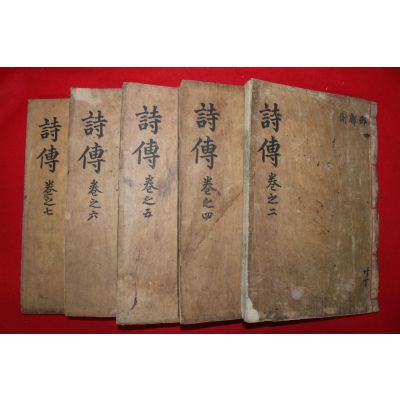 詩傳 卷之二
邶鄘衛
詩傳 卷之四
詩傳 卷之五
詩傳 卷之六
詩傳 卷之七